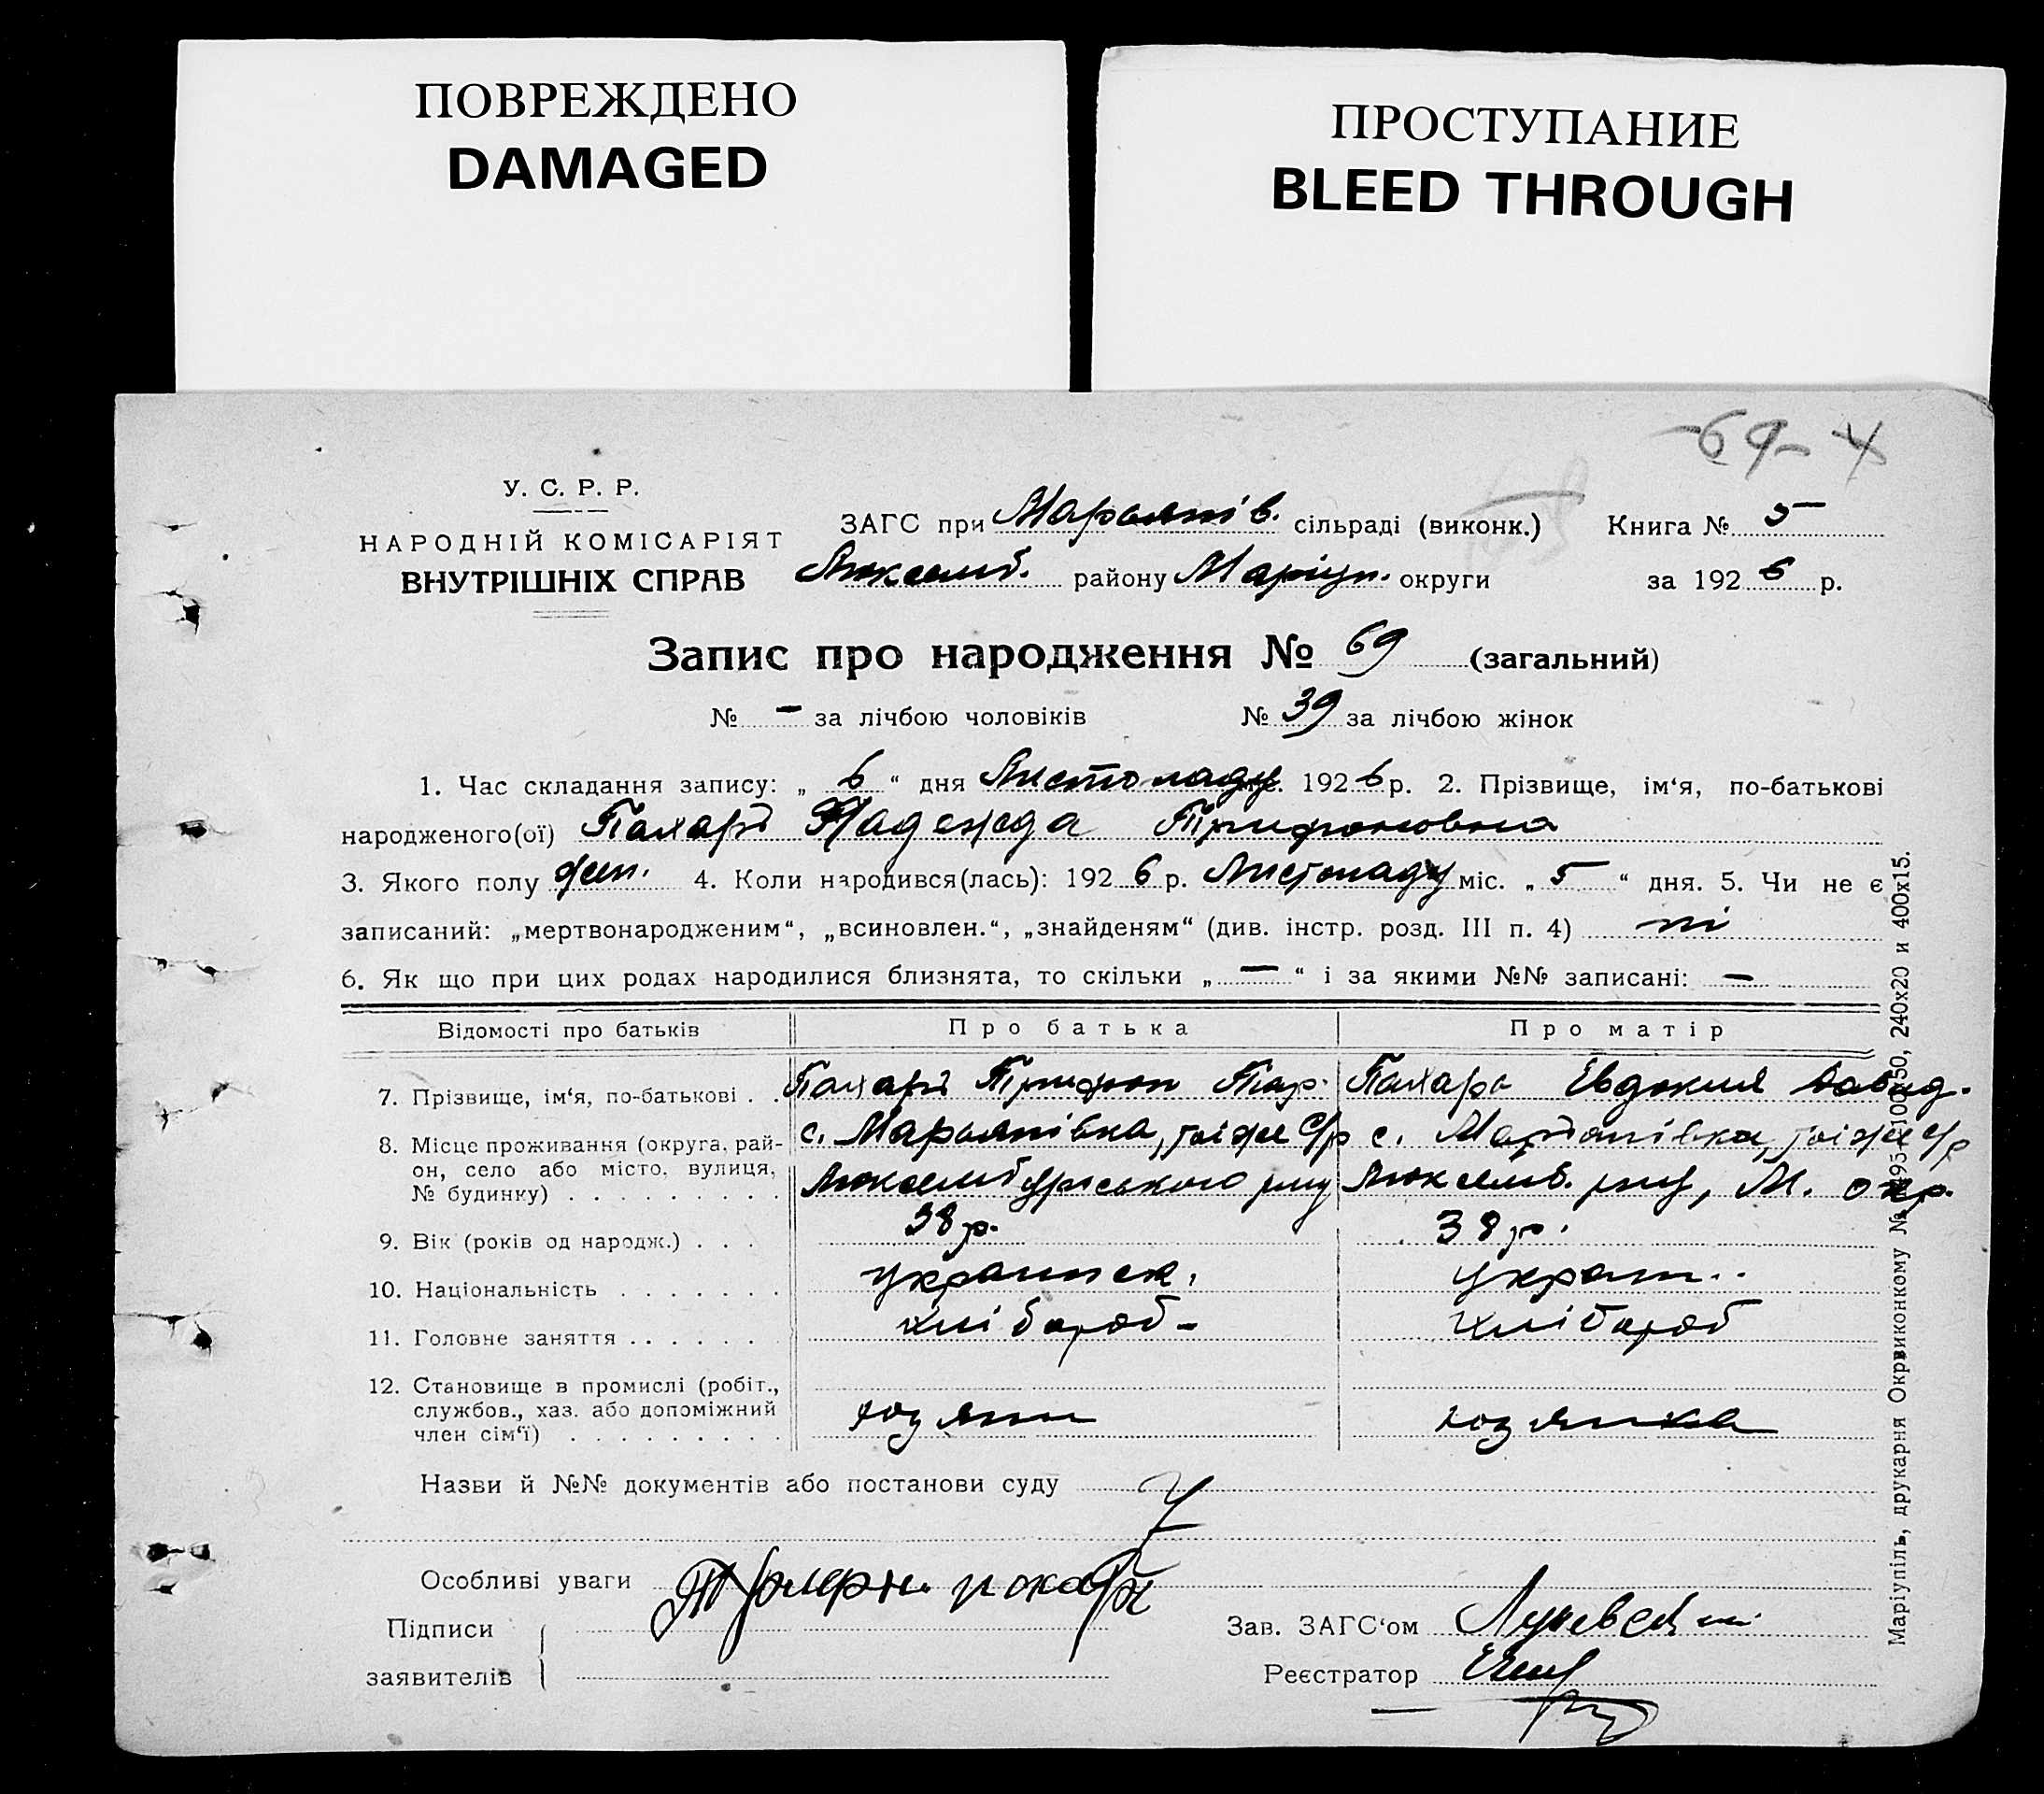 ПОВРЕЖДЕНО
DAMAGED
ПРОСТУПАНИЕ
BLEED THROUGH
69
У. С. Р. Р.
НАРОДНІЙ КОМІСАРІЯТ
ВНУТРІШНІХ СПРАВ
ЗАГС при Марьянів. сільраді (виконк.) Книга № 5
Люксемб. району Маріуп. округи за 1926 р.
Запис про народження № 69 (загальний)
№ – за лічбою чоловіків № 39 за лічбою жінок
1. Час складання запису: „ 6 “ дня Листопаду 1926 р. 2. Прізвище, ім‘я, по-батькові
народженого(ої) Пахарь Надежда Трифоновна
3. Якого полу жен. 4. Коли народився(лась): 1926 р. Листопаду міс. „ 5 “ дня. 5. Чи не є
записаний: „мертвонародженим“, „всиновлен.“, „знайденям“ (див. інстр. розд. III п. 4) ні
6. Як що при цих родах народилися близнята, то скільки „ — “ і за якими №№ записані: —
Відомості про батьків Про батька Про матір
7. Прізвище, ім‘я, по-батькові . . Пахарь Трифон Пахарь Евдокия Давид.
8. Місце проживання (округа, рай- с. Марьянівка, тієї же С/р с. Марьянівка, тієї же С/р
он, село або місто, вулиця,
№ будинку) . . . . . . . . . Люксембурського р-ну Люксемб. р-ну, М. окр.
9. Вік (років од народж.) . . . 38 р. 38 р.
10. Національність . . . . . . . украинск. украин..
11. Головне заняття . . . . . . хлібороб- хлібороб
12. Становище в промислі (робіт.,
службов., хаз. або допоміжний хозяин хозяйка
член сім‘ї) . . . . . . . . .
Назви й №№ документів або постанови суду
Особливі уваги
Підписи
заявителів
Зав. ЗАГС‘ом
Реєстратор
Маріупіль, друкарня Окрвиконкому 240х20 и 400х15.